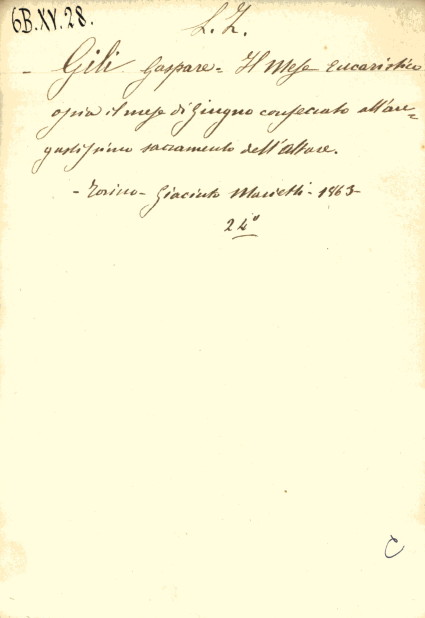 6B.XV.28.
L.Z.
- Gili Gaspare = Il Mese Eucaristico
ossia il mese di Giugno consecrato all'au=
gustissimo sacramento dell'Altare.
- Torino - Giacinto Marietti - 1863 -
24°
C